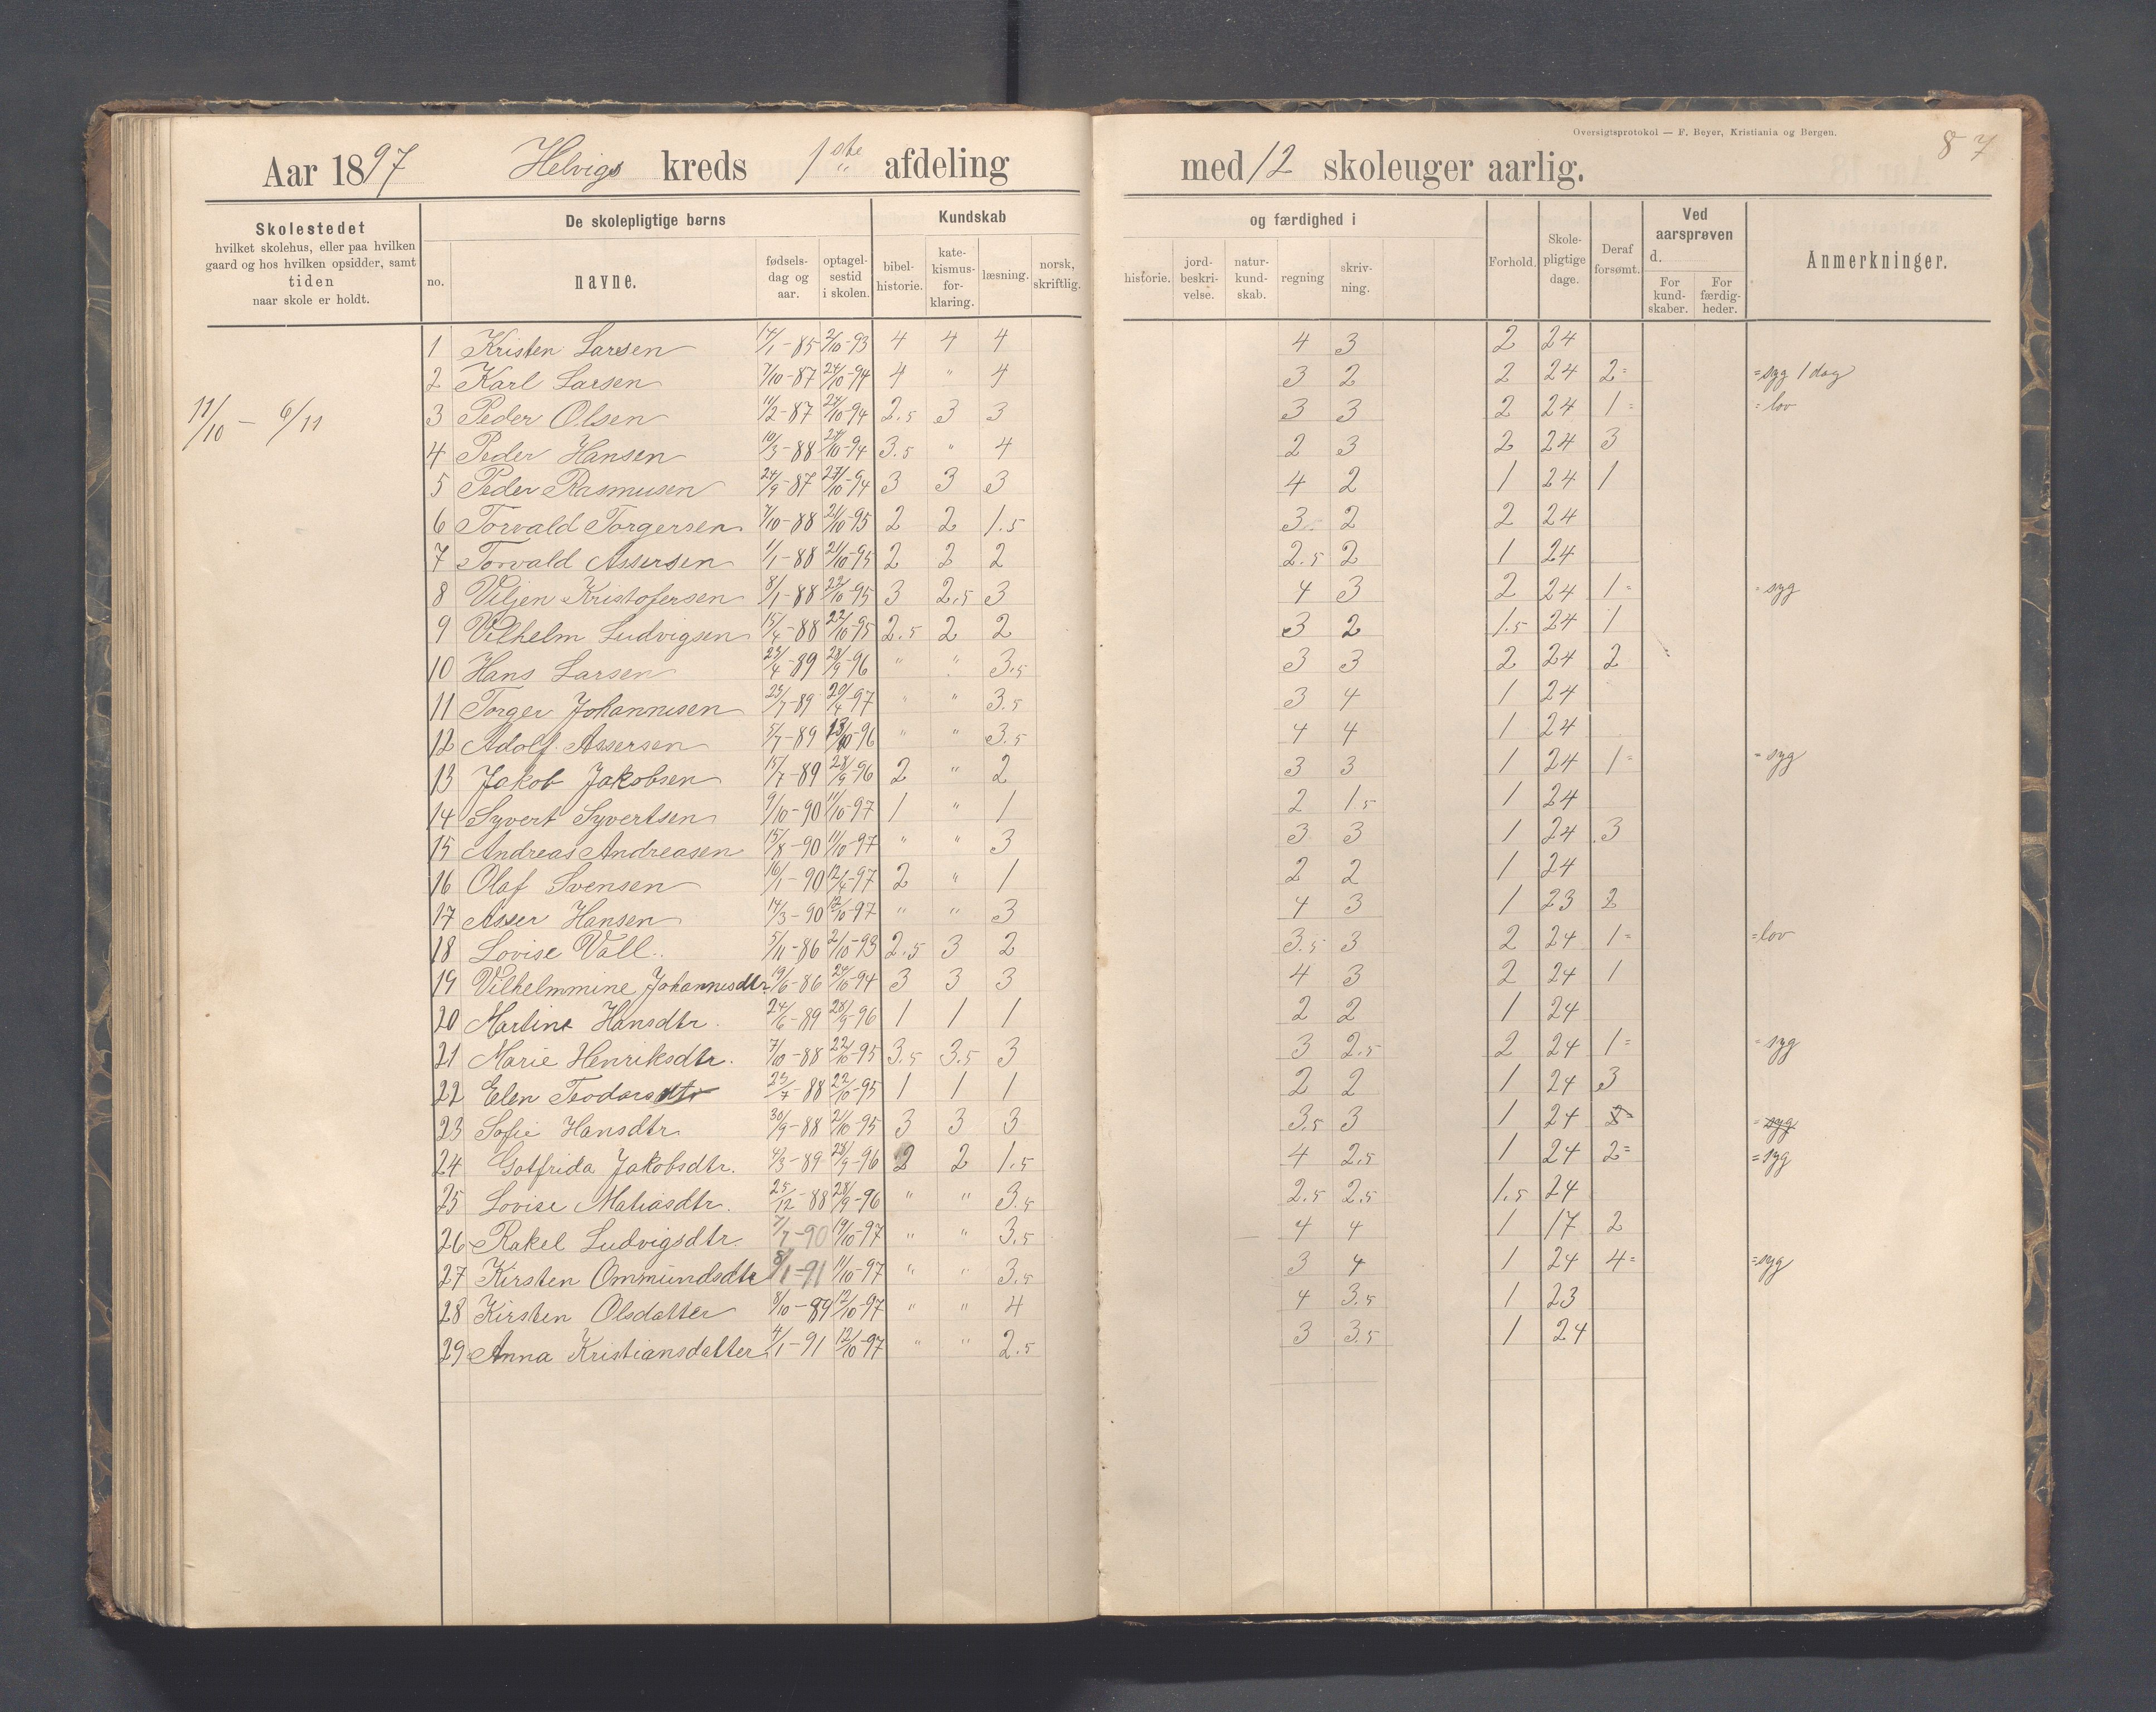 Oversigtsprotokol — F. Beyer, Kristiania og Bergen.
87
Aar 1897 Helvigs kreds 1ste afdeling med 12 skoleuger aarlig.
Skolestedet hvilket skolehus, eller paa hvilken gaard og hos hvilken opsidder, samt tiden naar skole er holdt.
De skolepligtige børns
no. navne. fødsels-dag og aar. optagel-sestid i skolen.
Kundskab og færdighed i
bibel-historie. kate-kismus-for-klaring. læsning. norsk, skriftlig. historie. jord-beskri-velse. natur-kund-skab. regning skriv-ning.
Forhold. Skole-pligtige dage. Deraf forsømt.
Ved aarsprøven d. For kund-skaber. For færdig-heder.
Anmerkninger.
11/10 – 6/11
1 Kristen Larsen 14/1-85 2/10-93 4 4 4 4 3 2 24
2 Karl Larsen 7/10-87 24/10-94 4 " 4 3 2 2 24 2= =syg 1 dag
3 Peder Olsen 11/2-87 24/10-94 2.5 3 3 3 3 2 24 1= =lov
4 Peder Hansen 10/3-88 24/10-94 3.5 " 4 2 3 2 24 3
5 Peder Rasmusen 24/9-87 27/10-94 3 3 3 4 2 1 24 1
6 Torvald Torgersen 7/10-88 21/10-95 2 2 1.5 3 2 2 24
7 Torvald Assersen 1/1-88 21/10-95 2 2 2 2.5 2 1 24
8 Viljen Kristofersen 8/1-88 22/10-95 3 2.5 3 4 3 2 24 1= =syg
9 Vilhelm Ludvigsen 15/4-88 22/10-95 2.5 2 2 3 2 1.5 24 1
10 Hans Larsen 23/4-89 28/9-96 " " 3.5 3 3 2 24 2
11 Torger Johannesen 25/7-89 20/4-97 " " 3.5 3 4 1 24
12 Adolf Assersen 5/7-89 13/10-96 " " 3.5 4 4 1 24
13 Jakob Jakobsen 15/7-89 28/9-96 2 " 2 3 3 1 24 1= =syg
14 Syvert Syvertsen 9/10-90 11/10-97 1 " 1 2 1.5 1 24
15 Andreas Andreasen 15/8-90 11/10-97 " " 3 3 3 1 24 3
16 Olaf Svensen 16/1-90 12/4-97 2 " 1 2 2 1 24
17 Asser Hansen 14/3-90 12/10-97 " " 3 4 3 1 23 2
18 Lovise Vall. 5/11-86 2/10-93 2.5 3 2 3.5 3 2 24 1= =lov
19 Vilhelmmine Johannesdtr. 19/6-86 24/10-94 3 3 3 4 3 2 24 1
20 Martine Hansdtr. 24/6-89 28/9-96 1 1 1 2 2 1 24
21 Marie Henriksdtr. 7/10-88 22/10-95 3.5 3.5 3 3 2.5 2 24 1= =syg
22 Elen Teodorsdtr 23/7-88 22/10-95 1 1 1 2 2 1 24 3
23 Sofie Hansdtr 30/9-88 21/10-95 3 3 3 3.5 3 1 24 =syg
24 Gotfrida Jakobsdtr. 4/3-89 28/9-96 2 2 1.5 4 2.5 1 24 2= =syg
25 Lovise Matiasdtr. 25/12-88 28/9-96 " " 3.5 2.5 2.5 1.5 24
26 Rakel Ludvigsdtr. 7/7-90 19/10-97 " " 3.5 4 4 1 17 2
27 Kirsten Ommundsdtr 8/1-91 11/10-97 " " 3.5 3 4 1 24 4= =syg
28 Kirsten Olsdatter 8/10-89 12/10-97 " " 4 4 3.5 1 23
29 Anna Kristiansdatter 4/1-91 12/10-97 " " 2.5 3 3.5 1 24